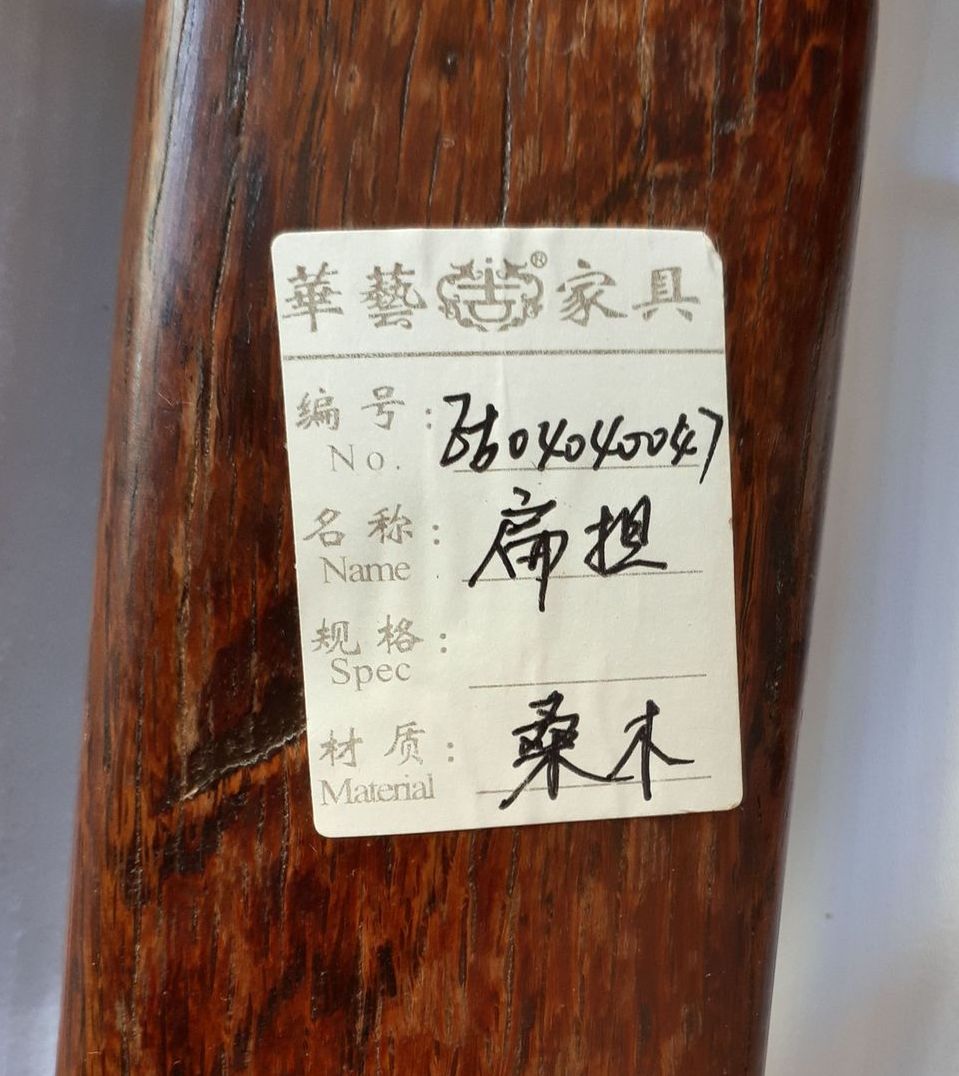 華藝 ® 家具
编号:
No.
名称: 扁担
Name
规格:
Spec
材质: 桑木
Material